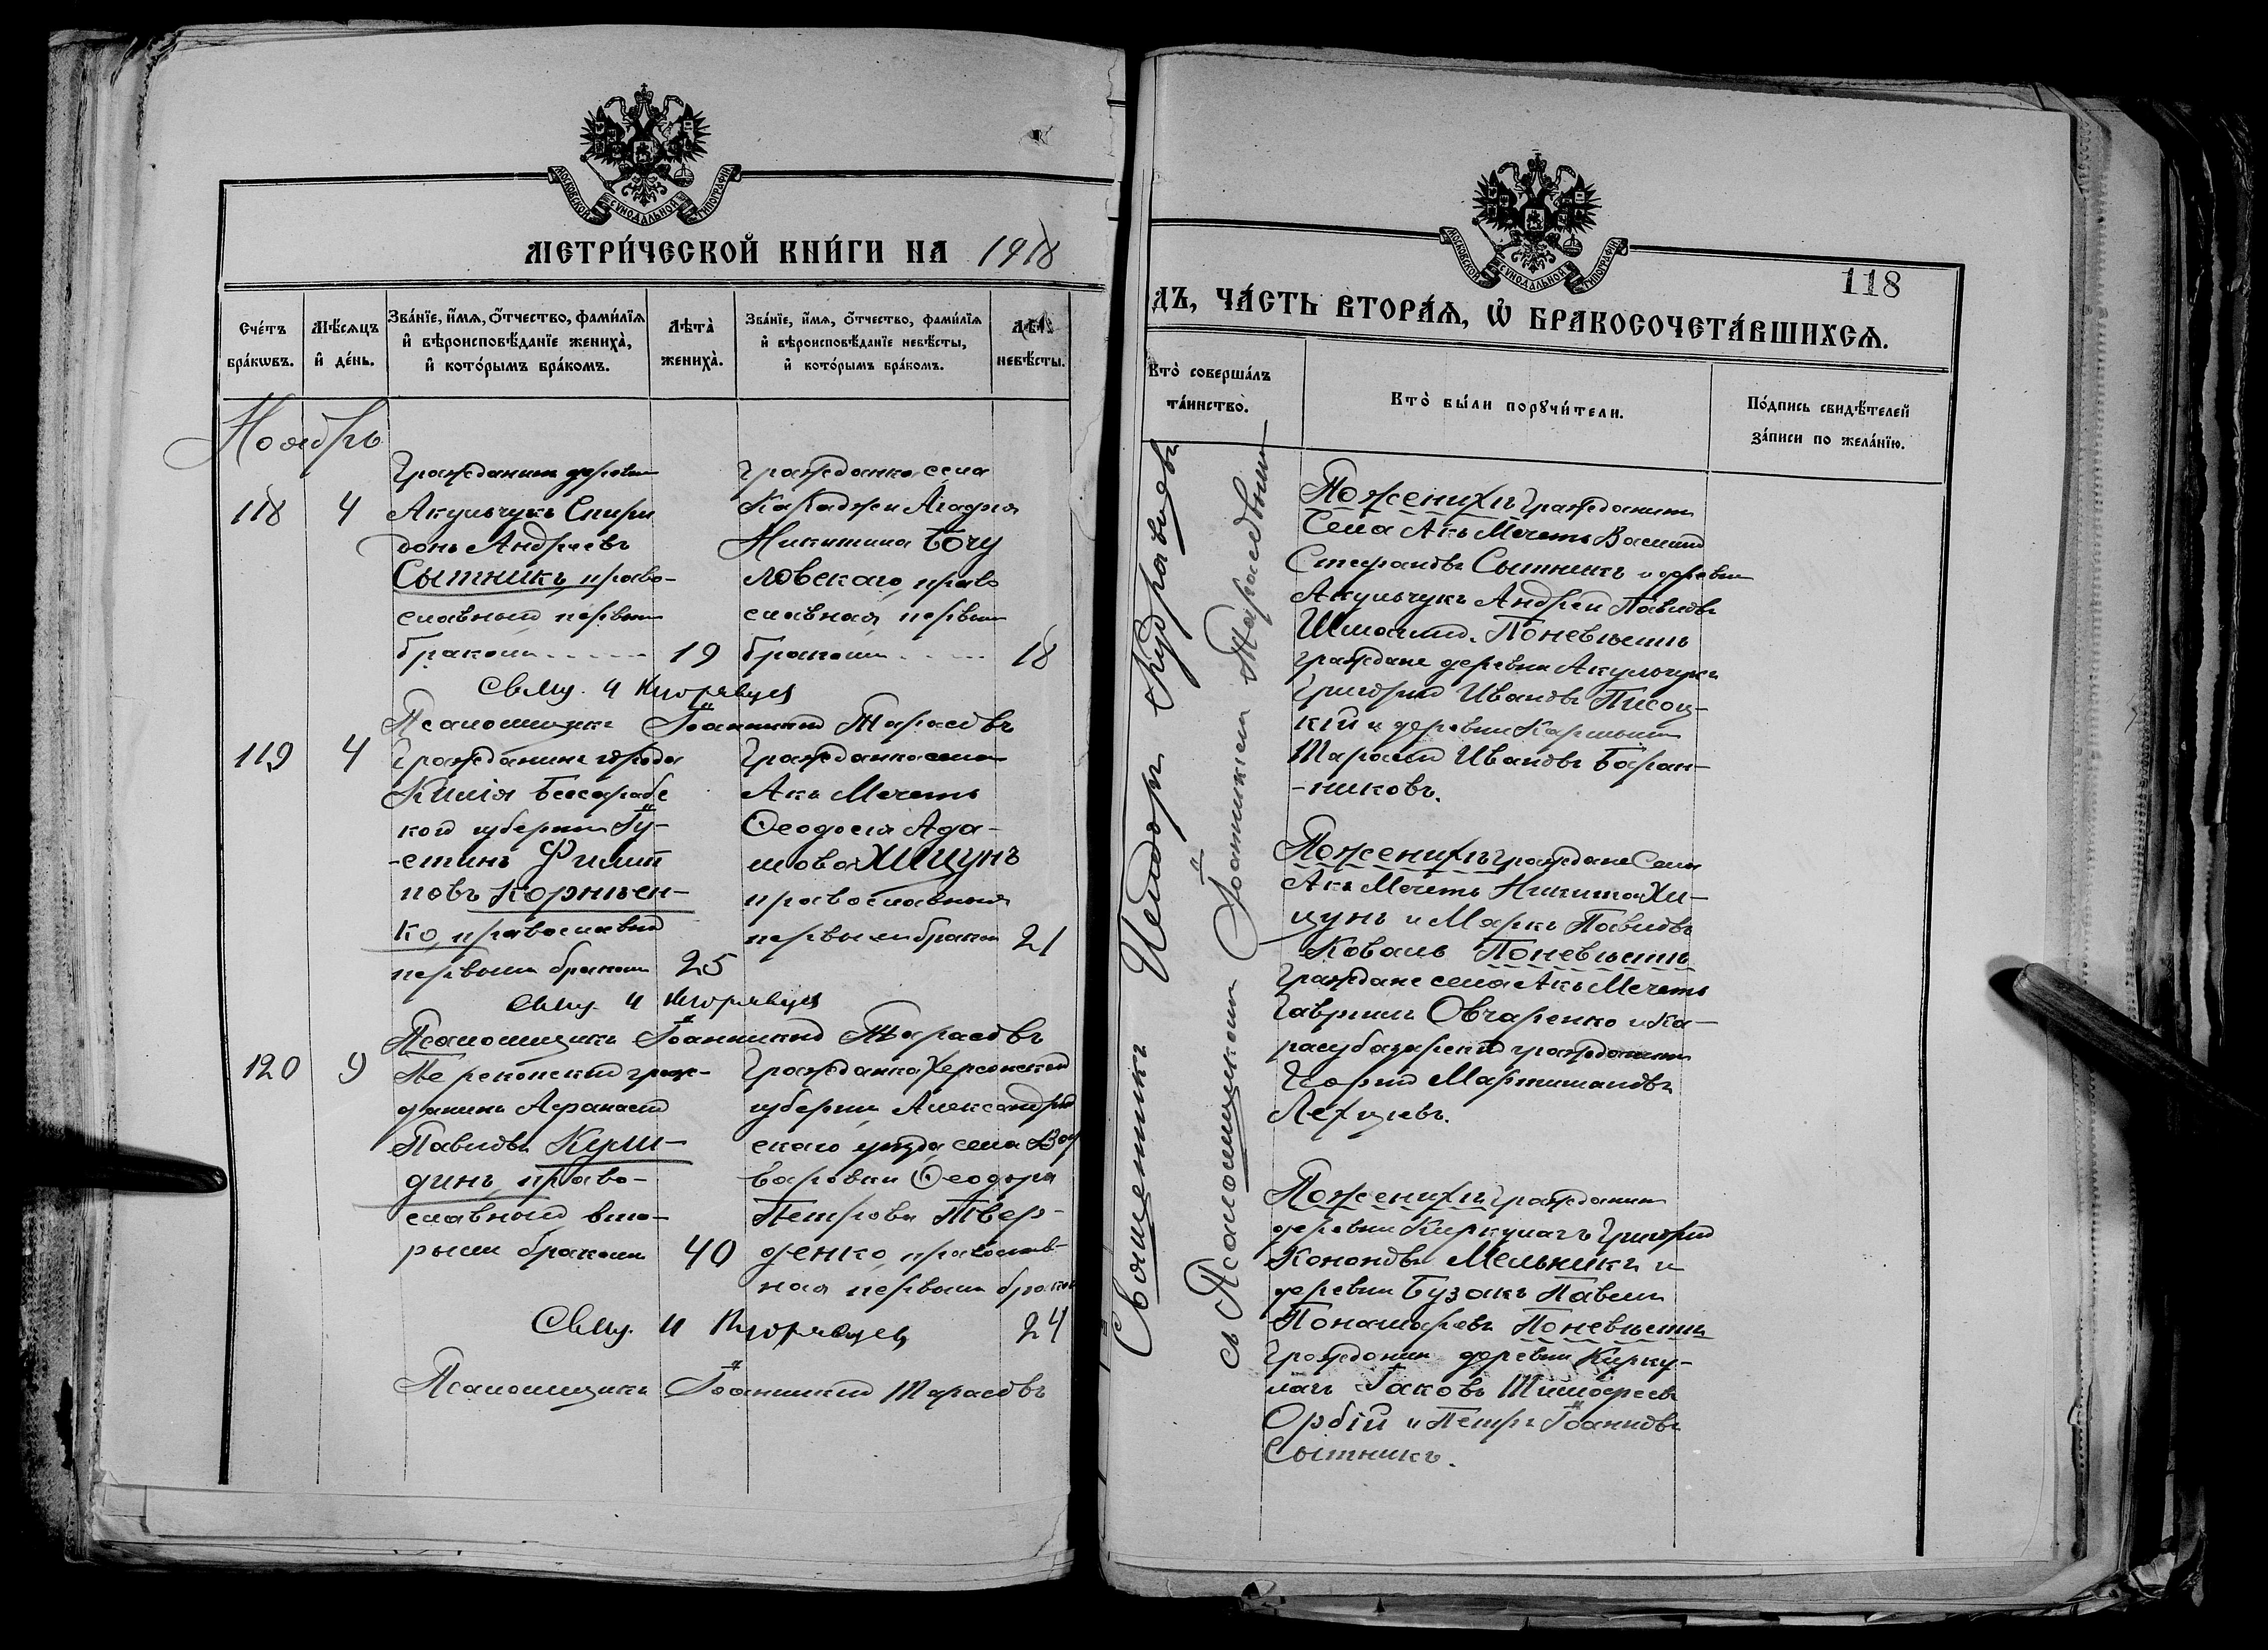 МОСКОВСКОЙ СΥНОДАЛЬНОЙ ТИПОГРАФИИ
МЕТРИ́ЧЕСКОЙ КНИ́ГИ НА 1918
Сче́тъ бра́кωвъ.
Мѣ́сяцъ и҆ де́нь.
Зва́нїе, и҆́мѧ, ѻ҆́тчество, фами́лїѧ и҆ вѣроисповѣ́данїе жениха̀, и҆ кото́рымъ бра́комъ.
Лѣта̀ жениха̀.
Зва́нїе, и҆́мѧ, ѻ҆́тчество, фами́лїѧ и҆ вѣроисповѣ́данїе невѣ́сты, и҆ кото́рымъ бра́комъ.
Лѣта̀ невѣ́сты.
Ноябрь
118
4
Гражданинъ деревни
Акульчукъ Спири
донъ Андреевъ
Сытникъ, право-
славный первым
бракомъ
19
Гражданка села
Агафия
Никитина Богу
ловскаго, право
славная, первым
бракомъ
18
Свящ. И Кудрявцев
Псаломщикъ Іоанникій Тарасовъ
119
4
Гражданинъ города
Килія Бессарабс
кой губерніи Іу-
-стинъ Филип
повъ Корніен-
ко, православный
первымъ бракомъ
25
Гражданка села
Акъ Мечеть
Ѳеодосія Ада-
мова Хицунъ
православная
первымъ бракомъ
21
Свящ. И Кудрявцев
Псаломщикъ Іоанникій Тарасовъ
120
9
Перекопскій граж-
данинъ Афанасій
Павловъ Курш-
динъ, право-
славный вто-
рымъ бракомъ
40
Гражданка Херсонской
губерніи, Александрій
скаго уѣзда, села
Ѳеодора
Петрова Твер-
денко, православ-
ная первымъ бракомъ
24
Свящ. И Кудрявцев
Псаломщикъ Іоанникій Тарасовъ
МОСКОВСКОЙ СΥНОДАЛЬНОЙ ТИПОГРАФИИ
118
ДЪ, ЧА́СТЬ ВТОРА́Ѧ, Ѽ БРАКОСОЧЕТА́ВШИХСѦ.
Кто̀ соверша́лъ та́инство.
Кто̀ бы́ли порꙋчи́тели.
По́дпись свидѣ́телей за́писи по жела́нїю.
Священникъ Исидоръ Кудрявцевъ
съ Псаломщикомъ Іоанникіем Тарасовымъ
По женихѣ гражданинъ
Села Акъ Мечеть Василій
Стефановъ Сытникъ и деревни
Акульчукъ Андрей Павловъ
Шмалій. По невѣстѣ
граждане деревни Акульчукъ
Григорій Ивановъ Писоц-
кій и деревни
Тарасій Ивановъ Баран-
-никовъ.
По женихѣ граждане Села
Акъ Мечеть Никита Хи-
цунъ и Маркъ Павловъ
Коваль По невѣстѣ
граждане села Акъ Мечеть
Гавріилъ Овчаренко и Ка-
расубазарскій гражданинъ
По женихѣ гражданинъ
деревни Киркулачъ Григорій
Кононовъ Мельникъ и
деревни Бузакъ Павелъ
Понамаревъ По невѣстѣ
Гражданинъ деревни Кирку-
лачъ Іаковъ Тимофеевъ
Орбій и Петръ Іоанновъ
Сытникъ.